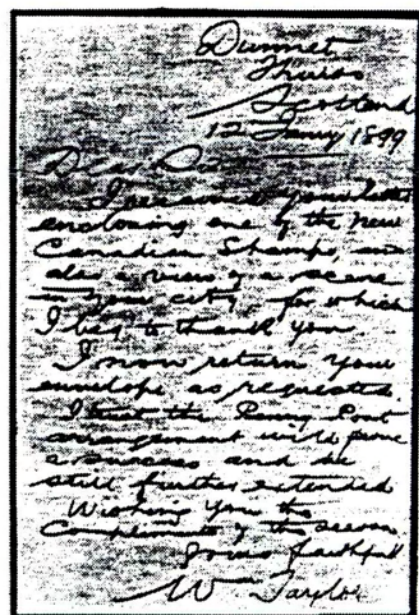 Dunnet
Thurso
Scotland
12 Jany 1899
Dear Sir
I received your letter
enclosing one of the new
Canadian Stamps, and
also a view of a scene
in your city for which
I beg to thank you.
I now return your
envelope as requested.
I trust the Penny Post
arrangement will prove
a success and be
still further extended
Wishing you the
Compliments of the season
Yours faithfull
Wm Taylor